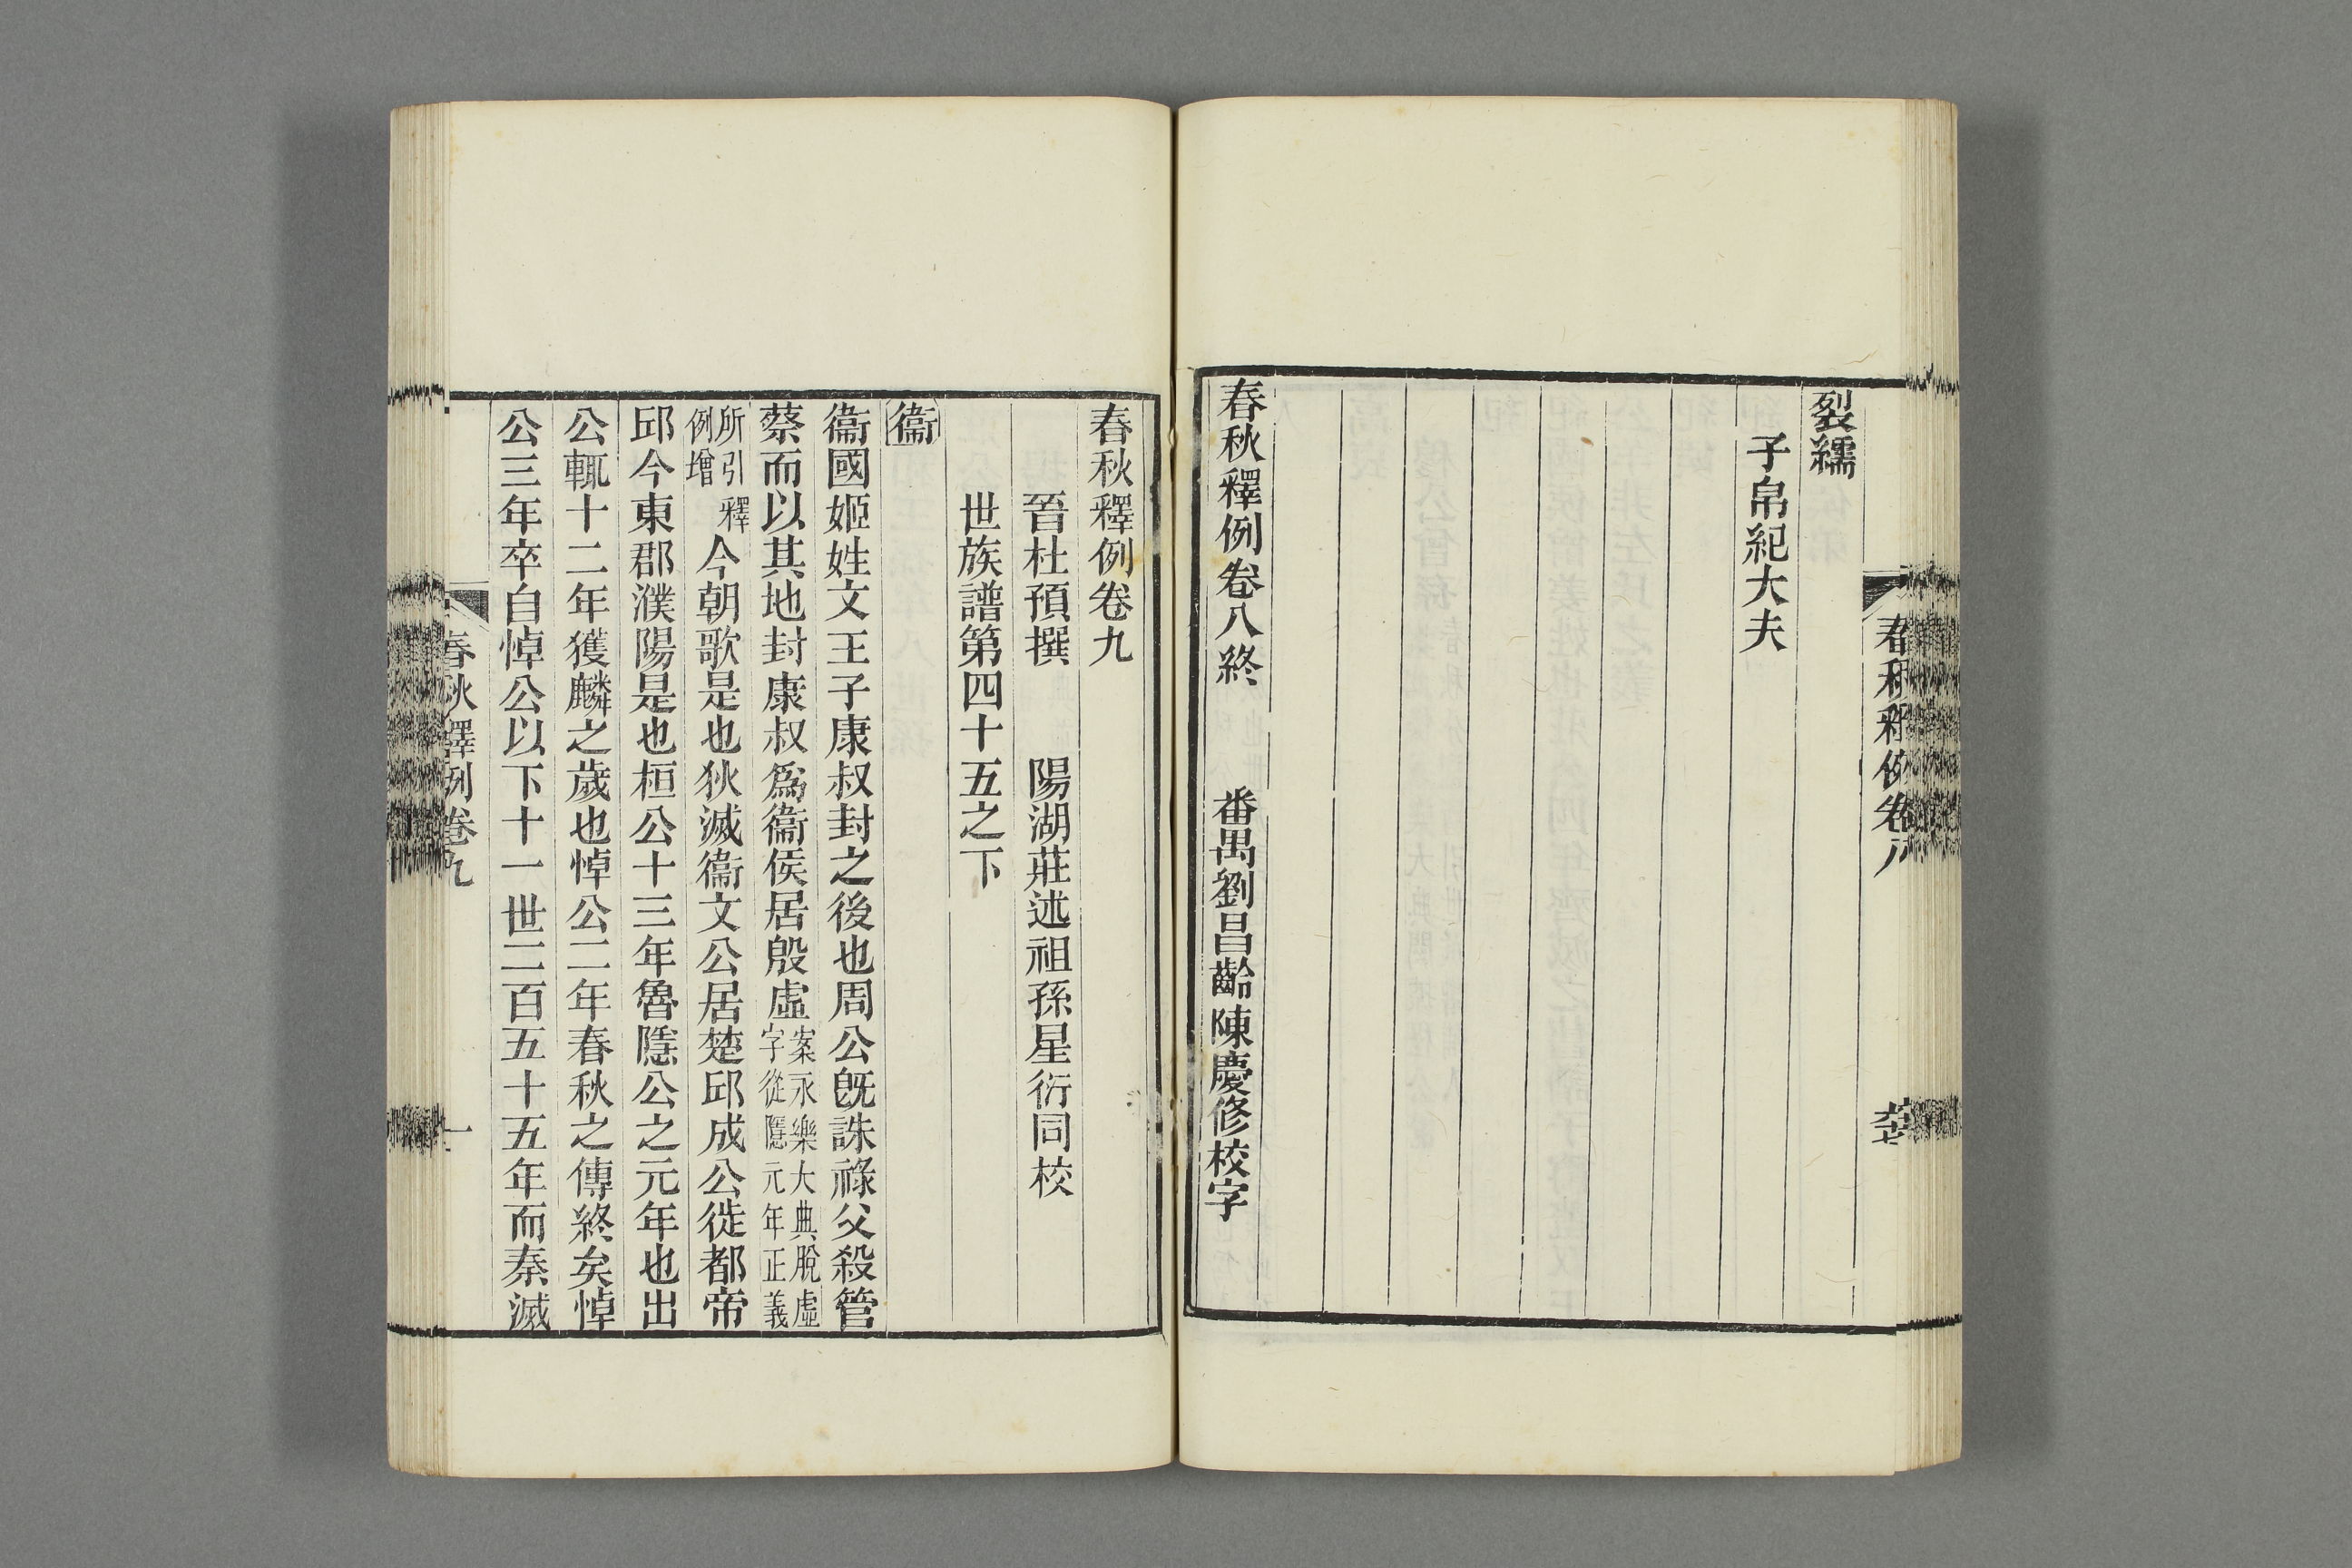 裂繻
子帛紀大夫
春秋釋例卷八終　番禺劉昌齡陳慶修校字
春秋釋例卷九
晉杜預撰　陽湖莊述祖孫星衍同校
世族譜第四十五之下
衞
衞國姬姓文王子康叔封之後也周公旣誅祿父殺管
蔡而以其地封康叔爲衞侯居殷虛案永樂大典脫虛字從隱元年正義
所引釋例增今朝歌是也狄滅衞文公居楚邱成公徙都帝
邱今東郡濮陽是也桓公十三年魯隱公之元年也出
公輒十二年獲麟之歲也悼公二年春秋之傳終矣悼
公三年卒自悼公以下十一世二百五十五年而秦滅
春秋釋例卷九
一